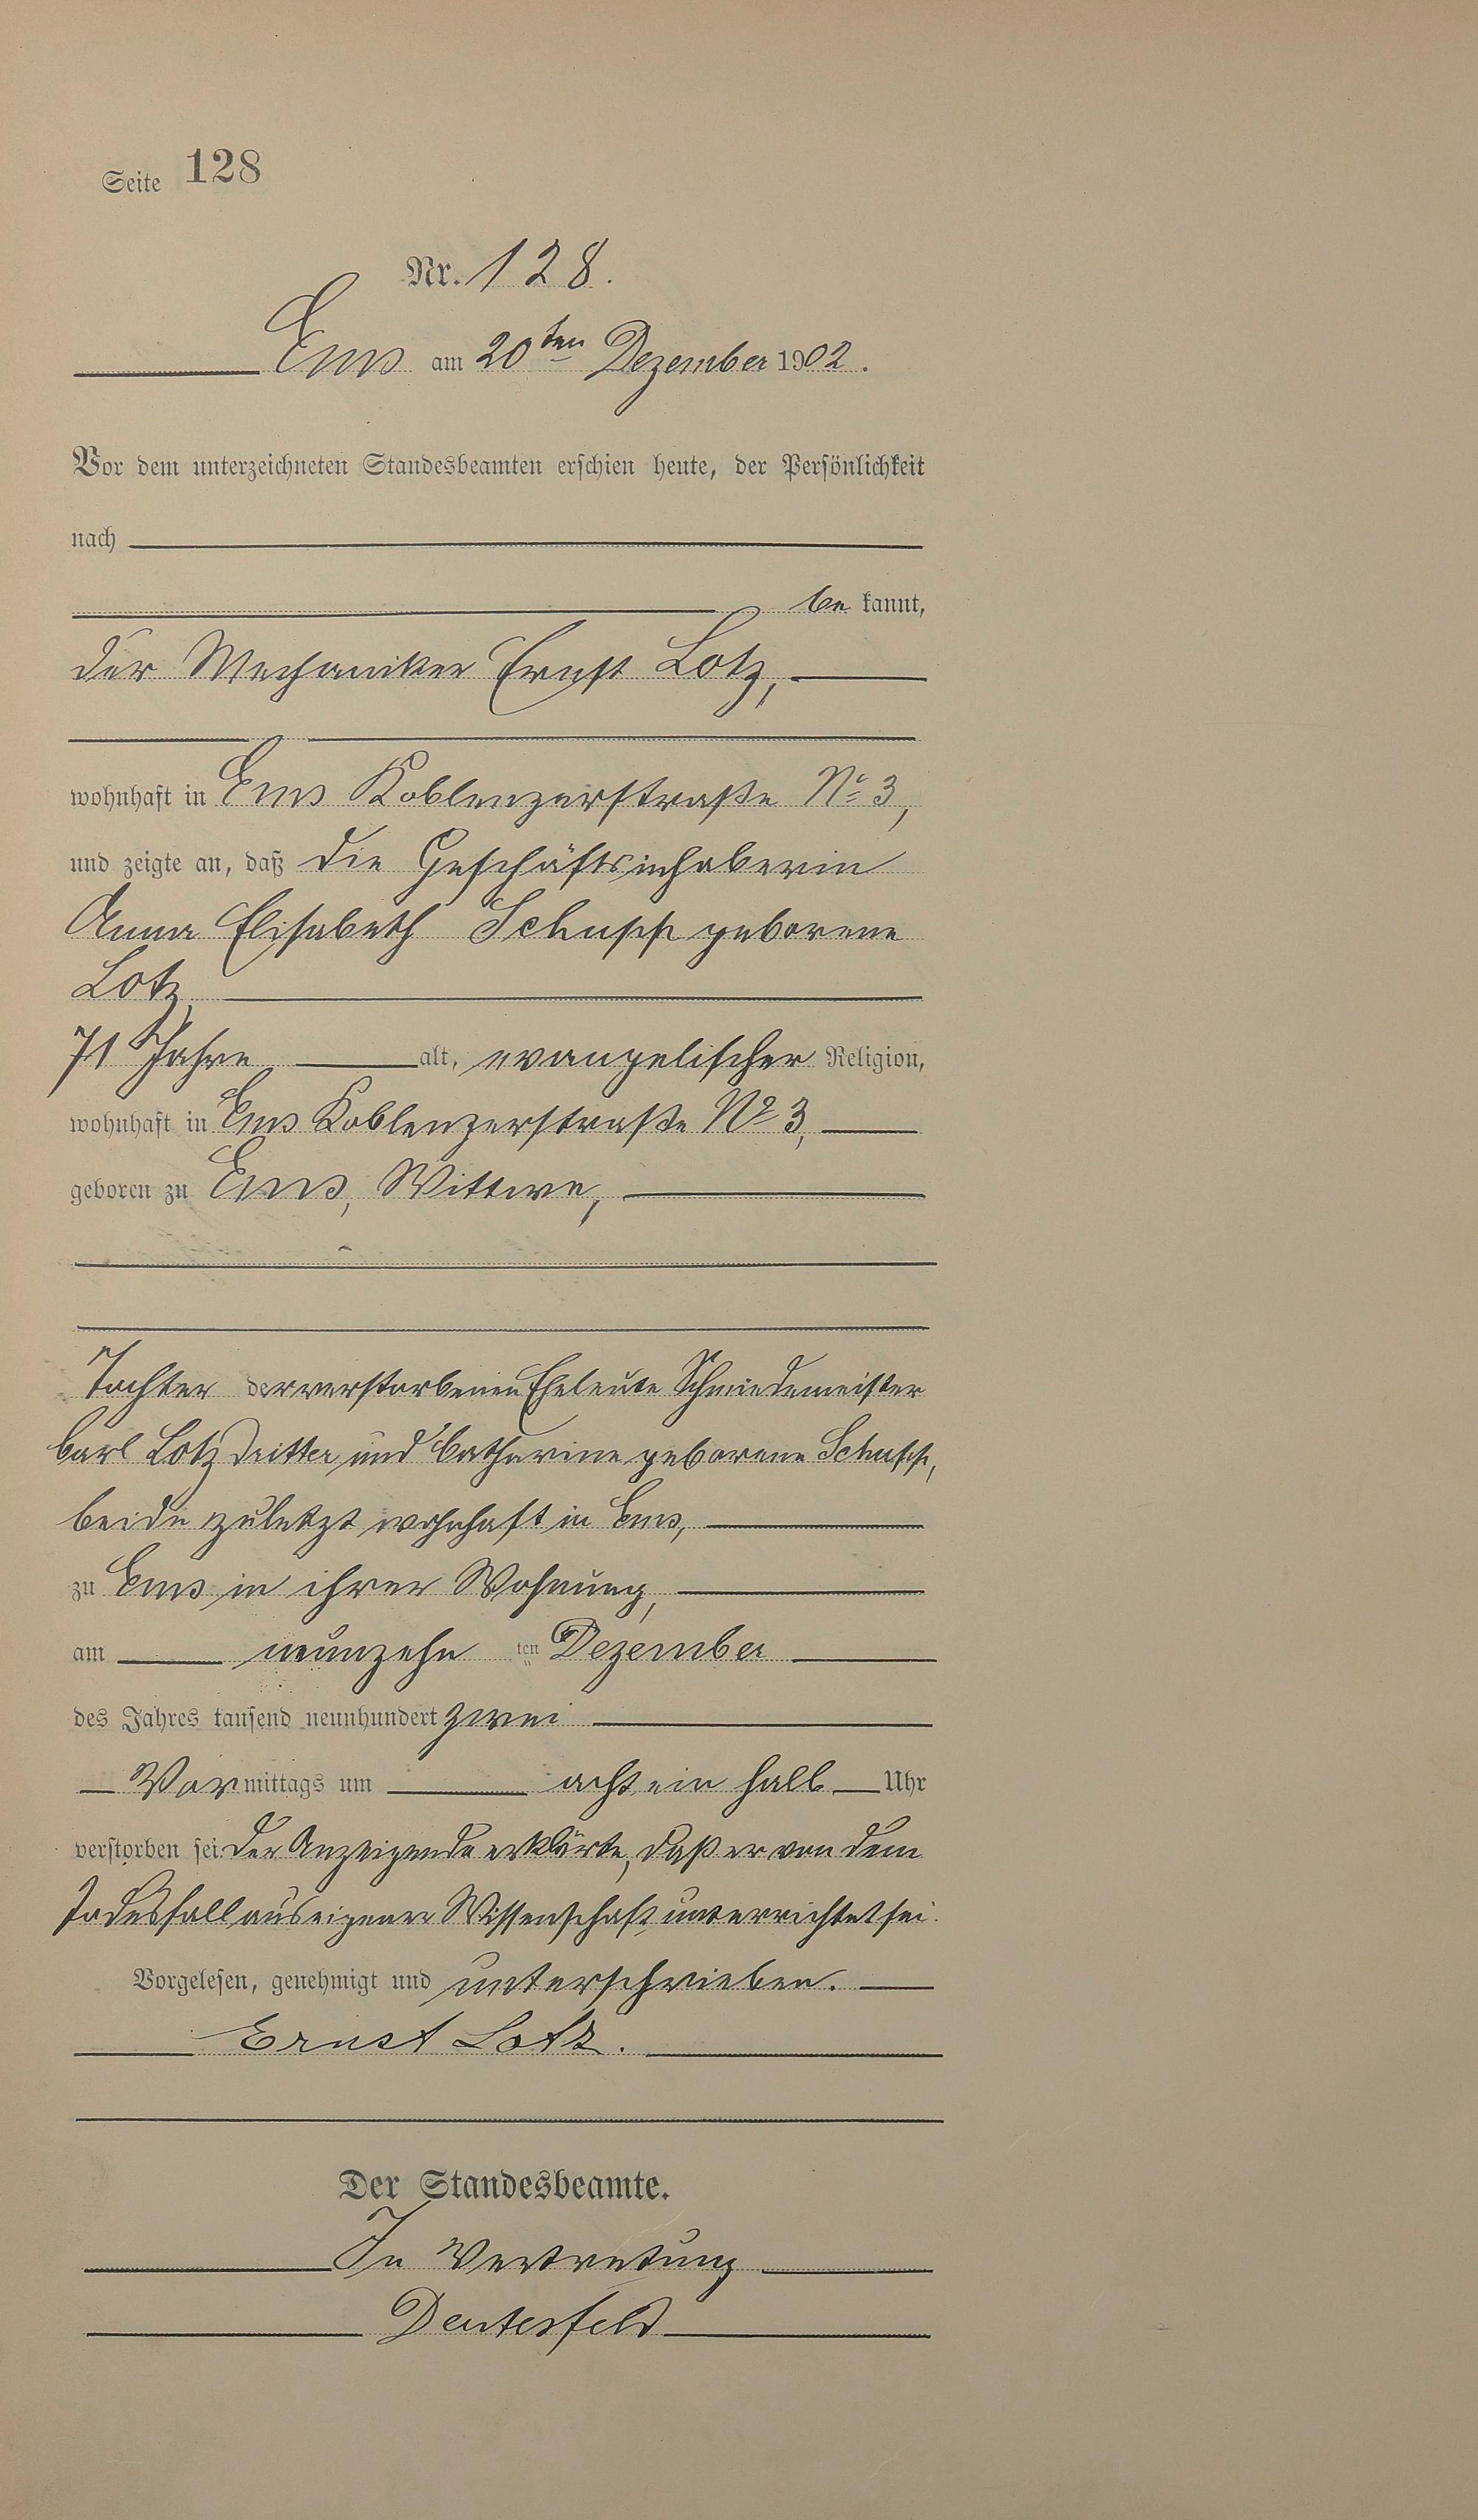 Seite 128
Nr. 128.
Ems am 20ten Dezember 1902.
Vor dem unterzeichneten Standesbeamten erschien heute, der Persönlichkeit
nach
be kannt,
der Mechaniker Ernst Lotz,
wohnhaft in Ems Koblenzerstraße No 3,
und zeigte an, daß die Geschäftsinhaberin
Anna Elisabeth Schupp geborene
Lotz,
71 Jahre alt, evangelischer Religion,
wohnhaft in Ems Koblenzerstraße No 3,
geboren zu Ems, Wittwe,
Tochter der verstorbenen Eheleute Schmiedemeister
Carl Lotz dritter und Catharine geborene Schupp,
beide zuletzt wohnhaft in Ems,
zu Ems in ihrer Wohnung,
am neunzehn ten Dezember
des Jahres tausend neunhundert zwei
Vormittags um acht ein halb Uhr
verstorben sei. Der Anzeigende erklärte, daß er von dem
Todesfall aus eigener Wissenschaft unterrichtet sei.
Vorgelesen, genehmigt und unterschrieben.
Ernst Lotz.
Der Standesbeamte.
In Vertretung
Deutesfeld